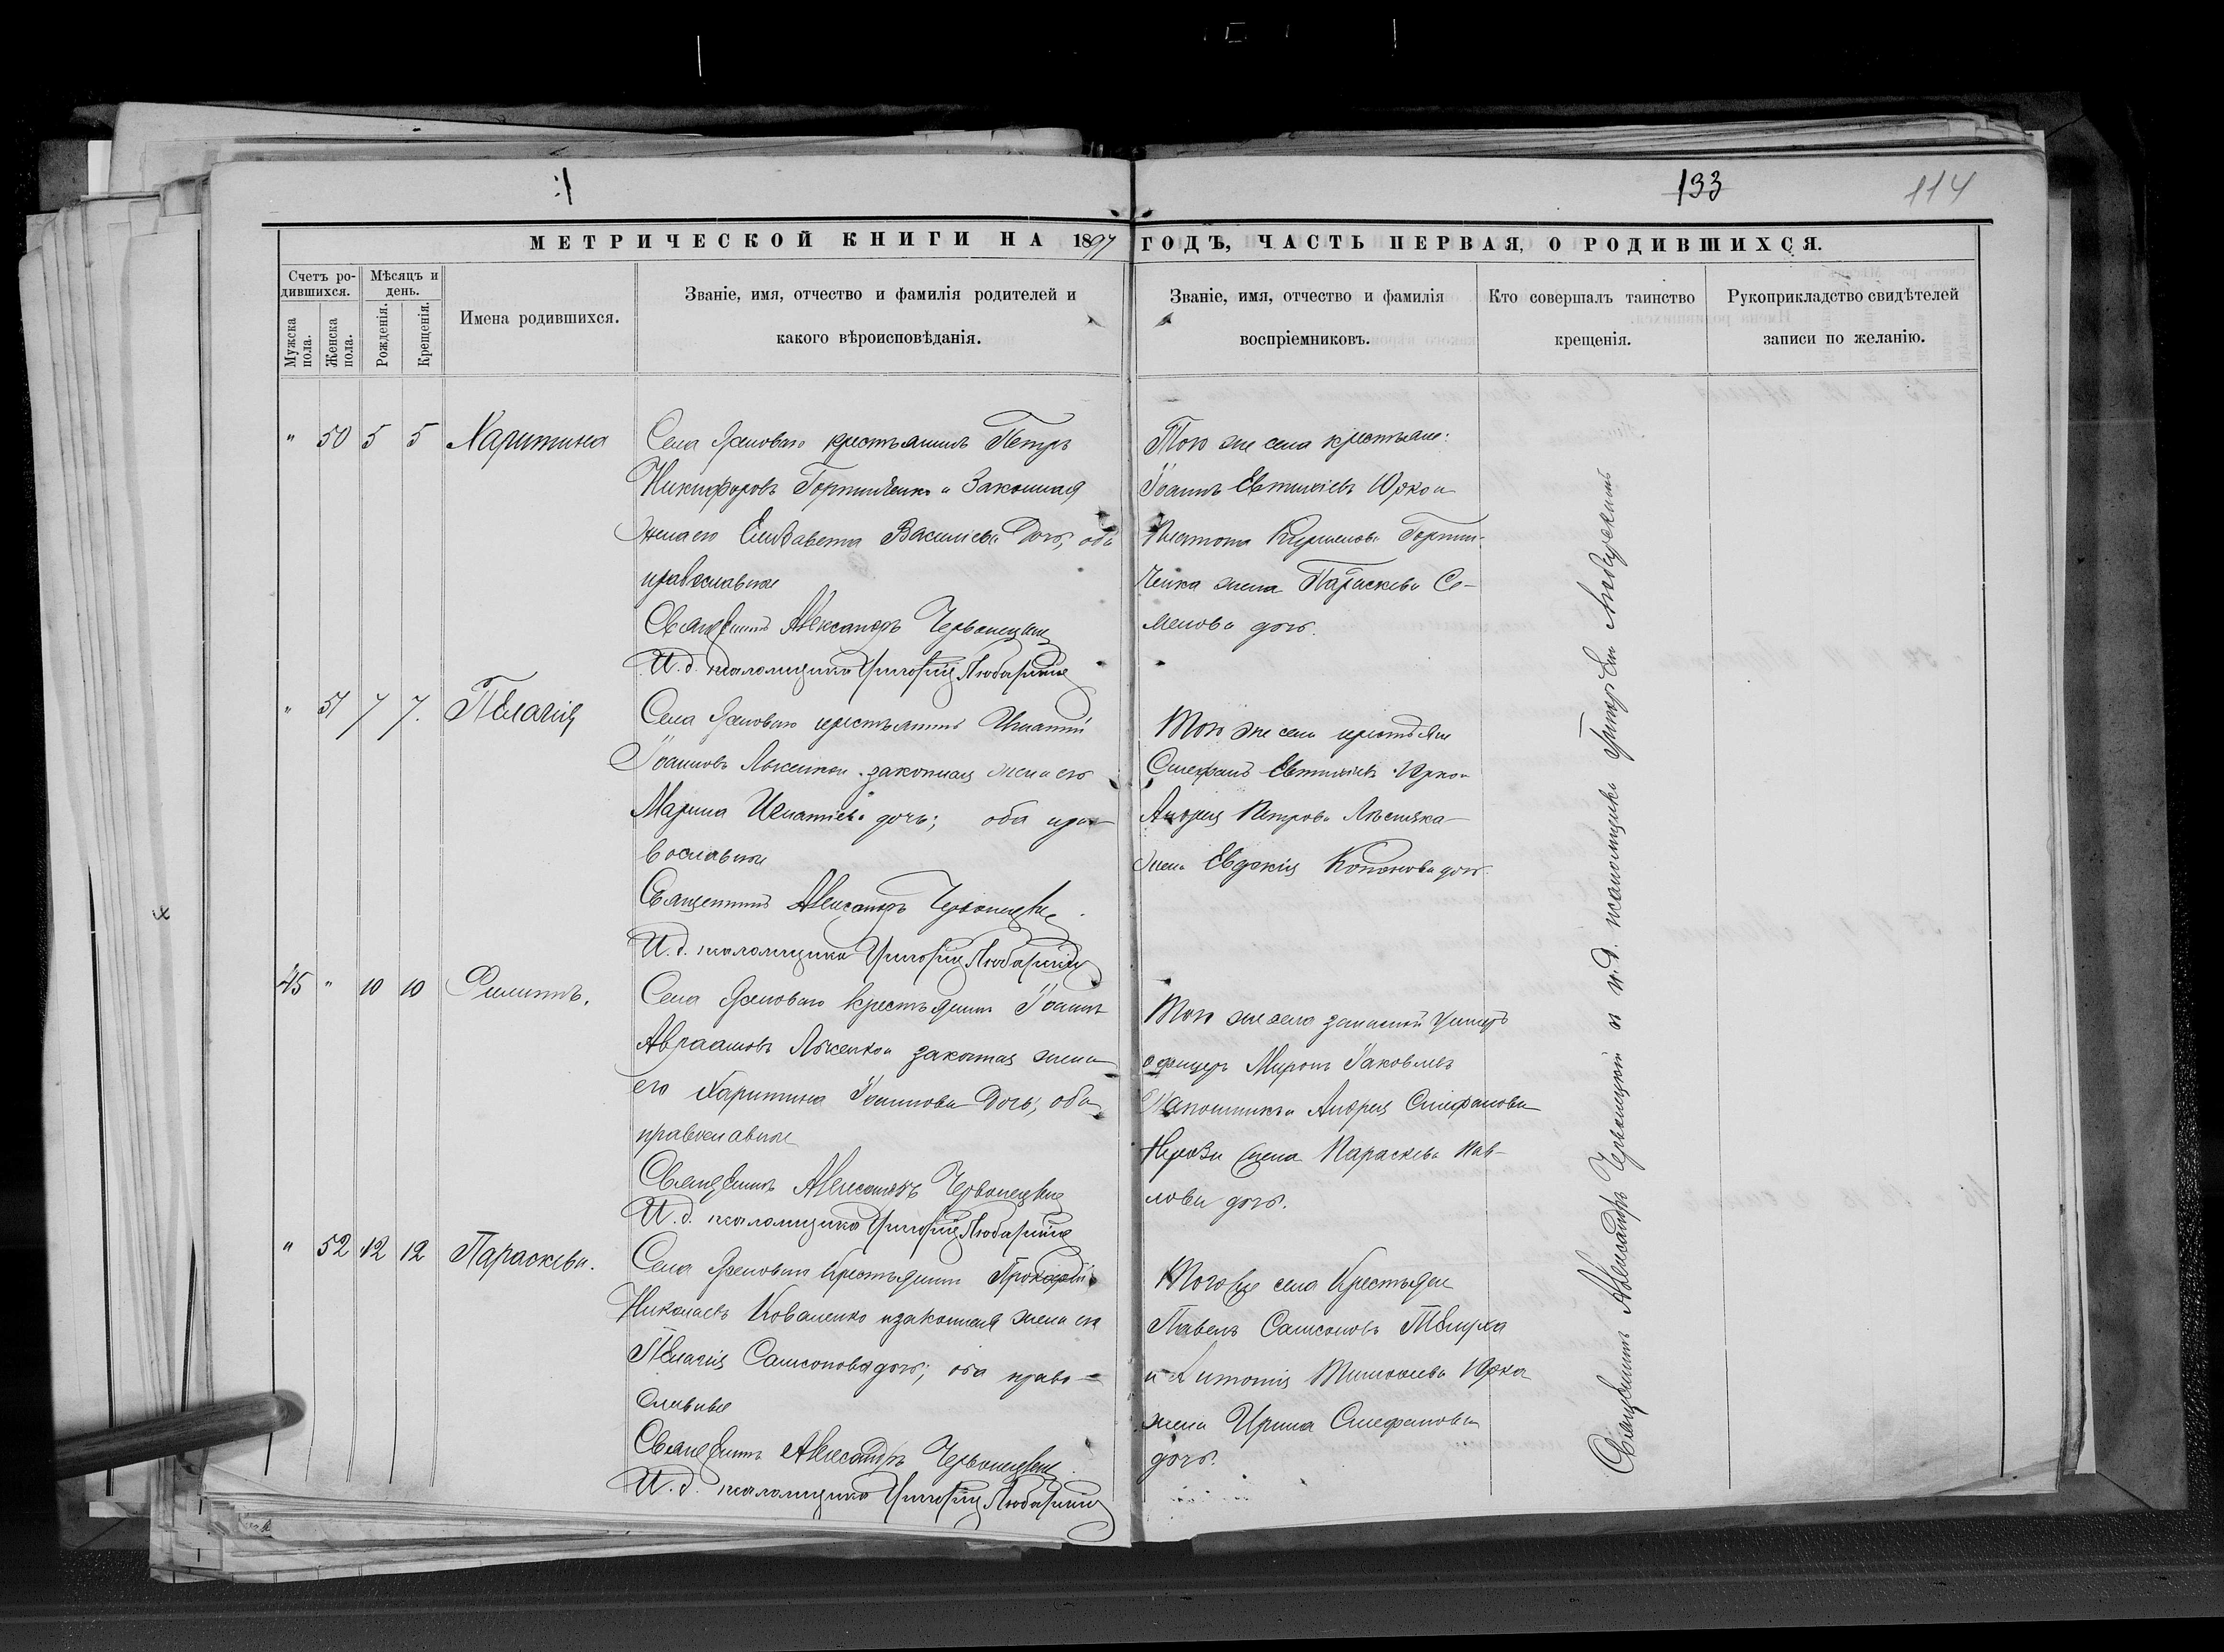 133
114
МЕТРИЧЕСКОЙ КНИГИ НА 1897 ГОДЪ, ЧАСТЬ ПЕРВАЯ, О РОДИВШИХСЯ.
Счетъ ро-
дившихся.
Мужска пола.
Женска пола.
Мѣсяцъ и день.
Рожденія.
Крещенія.
Имена родившихся.
Званіе, имя, отчество и фамилія родителей и
какого вѣроисповѣданія.
Званіе, имя, отчество и фамилія
воспріемниковъ.
Кто совершалъ таинство
крещенія.
Рукоприкладство свидѣтелей
записи по желанію.
" 50 5 5 Харитина
Села крестьянинъ Петръ
Никифоровъ и законная
жена его Елисавета Васильева дочь, оба
православные
Священникъ Александръ Червонецкій
И. д. псаломщика Григорій Любарскій
Того же села крестьяне:
Іоаннъ Евтихіевъ Юрко и
Платона Кириллова
жена Параскева Се-
менова дочь.
" 51 7 7. Пелагія
Села крестьянинъ Игнатій
Іоанновъ законная жена его
Марина Игнатіева дочь; оба пра-
вославные
Священникъ Александръ Червонецкій
И. д. псаломщика Григорій Любарскій
Того же села крестьяне
Стефанъ Евтихіевъ Юрко и
Андрея Петрова
жена Евдокія Кононова дочь
45 " 10 10 Филиппъ.
Села крестьянинъ Іоаннъ
Авраамовъ законная жена
его Харитина Іоаннова дочь, оба
православные
Священникъ Александръ Червонецкій
И. д. псаломщика Григорій Любарскій
Того же села запасной унтеръ
офицеръ Миронъ Іаковлевъ
Андрея Стефанова
жена Параскева Пав-
лова дочь.
" 52 12 12 Параскева.
Села крестьянинъ
Николаевъ Коваленко и законная жена его
Пелагія Самсонова дочь; оба право=
славные
Священникъ Александръ Червонецкій
И. д. псаломщика Григорій Любарскій
Того же села крестьяне
Павелъ Самсоновъ
и Антонія Тимофеева Юрка
жена Ирина Стефанова
дочь.
Священникъ Александръ Червонецкій и и. д. псаломщика Григорій Любарскій